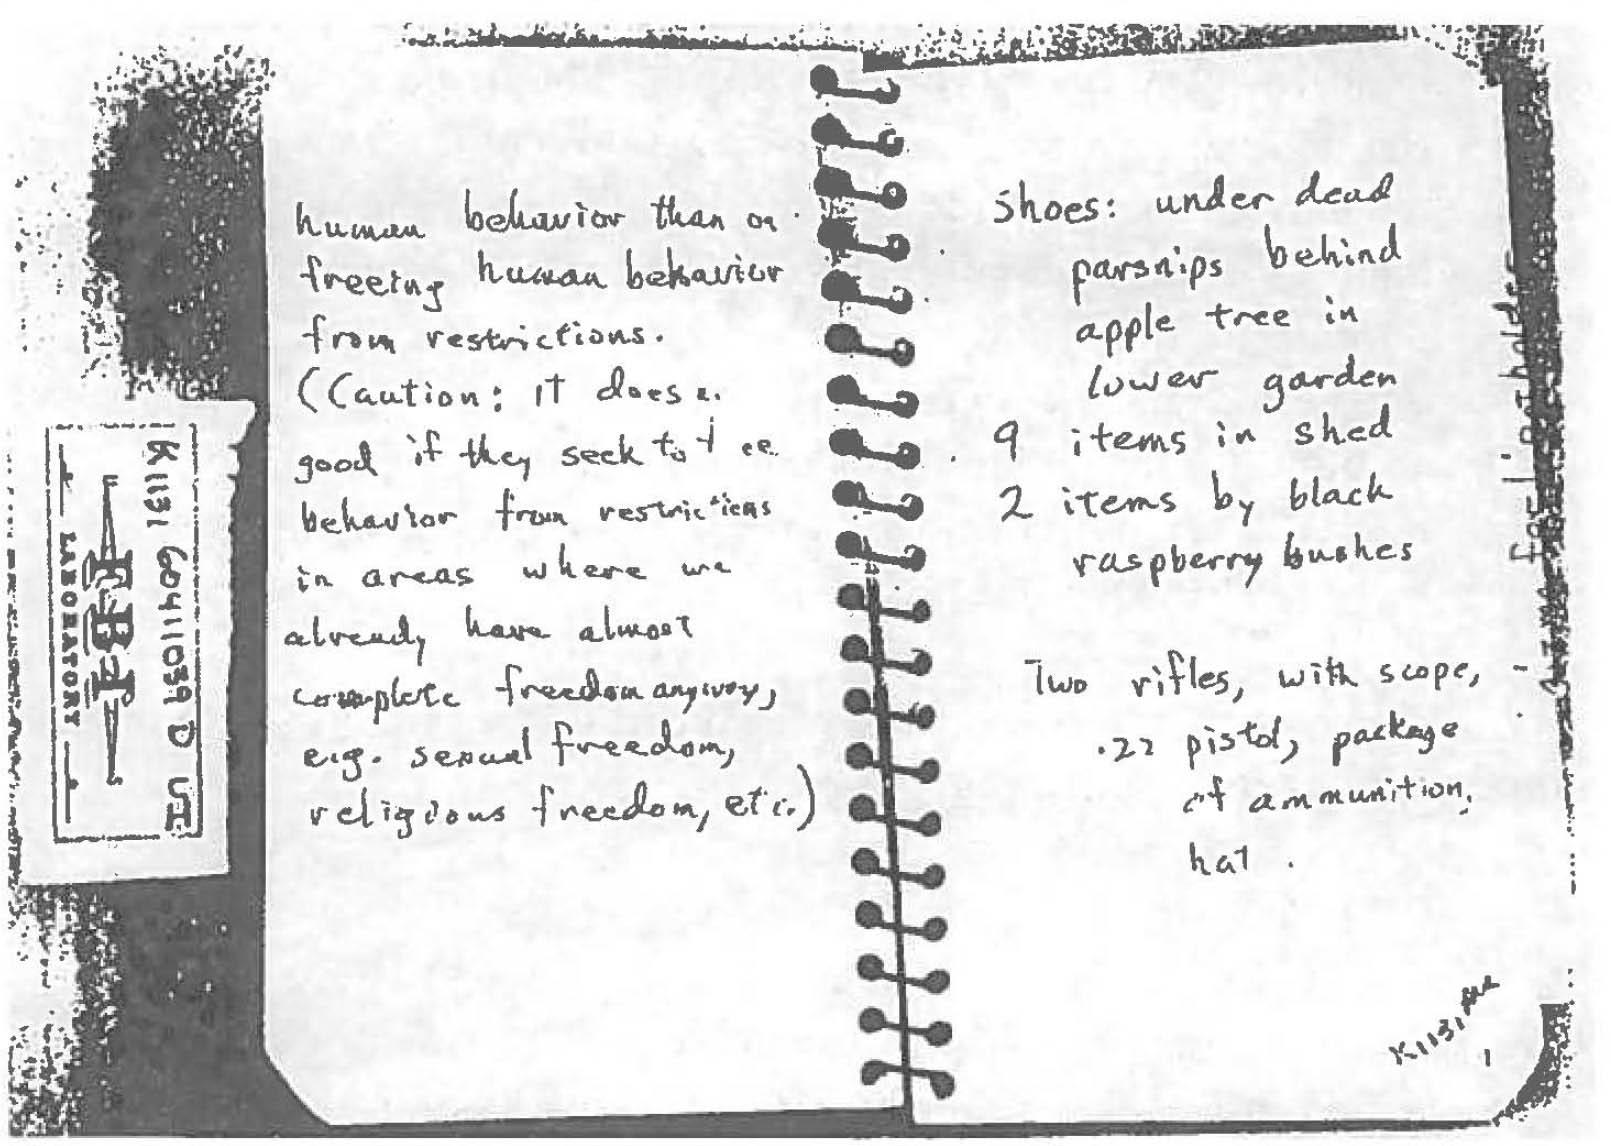 K1131 604111039 D UI
FBI
LABORATORY
human behavior than on
freeing human behavior
from restrictions.
(Caution: it does
good if they seek to
behavior from restrictions
in areas where we
already have almost
complete freedom anyway,
e.g. sexual freedom,
religious freedom, etc.)
Shoes: under dead
parsnips behind
apple tree in
lower garden
9 items in shed
2 items by black
raspberry bushes
Two rifles, with scope,
.22 pistol, package
of ammunition,
hat.
K1131
1